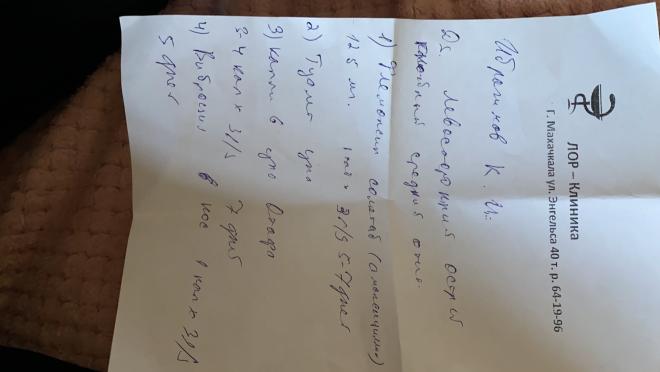 ЛОР – Клиника
Г. Махачкала ул. Энгельса 40 т. р. 64-19-96
Ибрагимов К. И.
Ds. Левосторонний острый
средний отит.
1) Флемоксин солютаб (амоксициллин)
125 мг. 1 таб x 3 р/д 5-7 дней
2) Туалет уха
3) Капли в ухо Отофа
3-4 кап x 3 р/д 7 дней
4) Виброцил в нос 1 кап x 3 р/д
5 дней